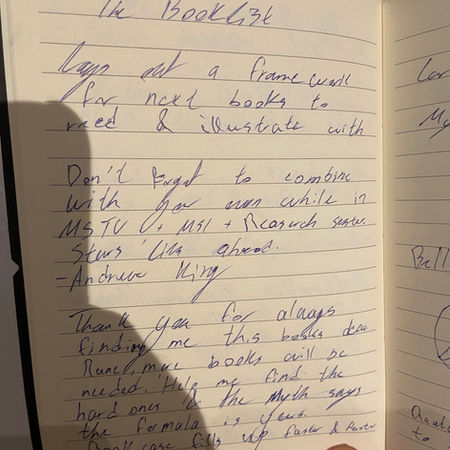 The Booklist
Lays out a framework
for next books to
read & illustrate with
Don't Forget to combine
with your own while in
MSTV + MSI + Research
Stars lies ahead.
- Andrew King
Thank you for always
finding me this books dear
more books will be
needed. Help me find the
hard ones & the myth says
the formula is yours
Book case fills up faster &
Bell
to